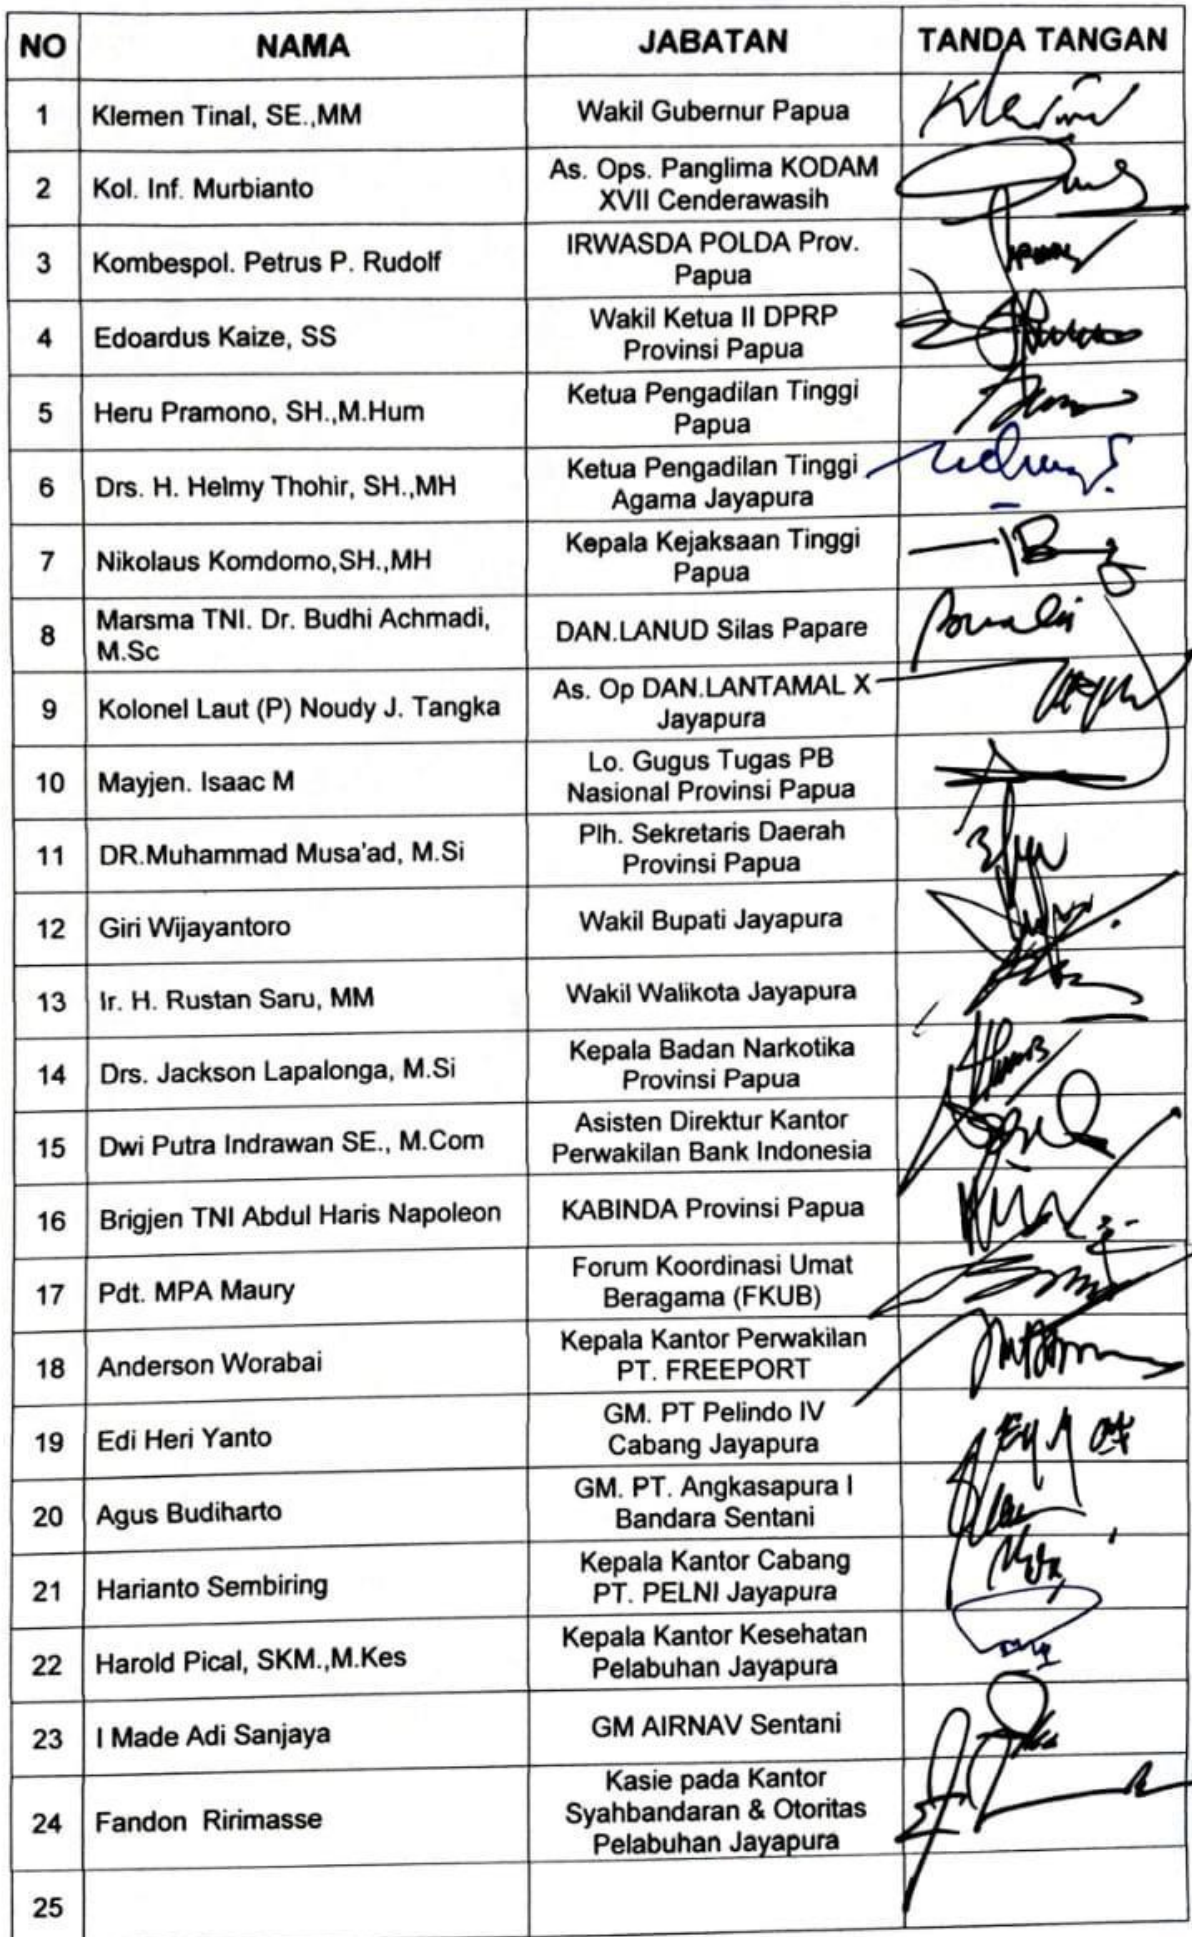 NO NAMA JABATAN TANDA TANGAN
1 Klemen Tinal, SE.,MM Wakil Gubernur Papua
2 Kol. Inf. Murbianto As. Ops. Panglima KODAM
XVII Cenderawasih
3 Kombespol. Petrus P. Rudolf IRWASDA POLDA Prov.
Papua
4 Edoardus Kaize, SS Wakil Ketua II DPRP
Provinsi Papua
5 Heru Pramono, SH.,M.Hum Ketua Pengadilan Tinggi
Papua
6 Drs. H. Helmy Thohir, SH.,MH Ketua Pengadilan Tinggi
Agama Jayapura
7 Nikolaus Komdomo,SH.,MH Kepala Kejaksaan Tinggi
Papua
8 Marsma TNI. Dr. Budhi Achmadi,
M.Sc DAN.LANUD Silas Papare
9 Kolonel Laut (P) Noudy J. Tangka As. Op DAN.LANTAMAL X
Jayapura
10 Mayjen. Isaac M Lo. Gugus Tugas PB
Nasional Provinsi Papua
11 DR.Muhammad Musa'ad, M.Si Plh. Sekretaris Daerah
Provinsi Papua
12 Giri Wijayantoro Wakil Bupati Jayapura
13 Ir. H. Rustan Saru, MM Wakil Walikota Jayapura
14 Drs. Jackson Lapalonga, M.Si Kepala Badan Narkotika
Provinsi Papua
15 Dwi Putra Indrawan SE., M.Com Asisten Direktur Kantor
Perwakilan Bank Indonesia
16 Brigjen TNI Abdul Haris Napoleon KABINDA Provinsi Papua
17 Pdt. MPA Maury Forum Koordinasi Umat
Beragama (FKUB)
18 Anderson Worabai Kepala Kantor Perwakilan
PT. FREEPORT
19 Edi Heri Yanto GM. PT Pelindo IV
Cabang Jayapura
20 Agus Budiharto GM. PT. Angkasapura I
Bandara Sentani
21 Harianto Sembiring Kepala Kantor Cabang
PT. PELNI Jayapura
22 Harold Pical, SKM.,M.Kes Kepala Kantor Kesehatan
Pelabuhan Jayapura
23 I Made Adi Sanjaya GM AIRNAV Sentani
24 Fandon Ririmasse Kasie pada Kantor
Syahbandaran & Otoritas
Pelabuhan Jayapura
25